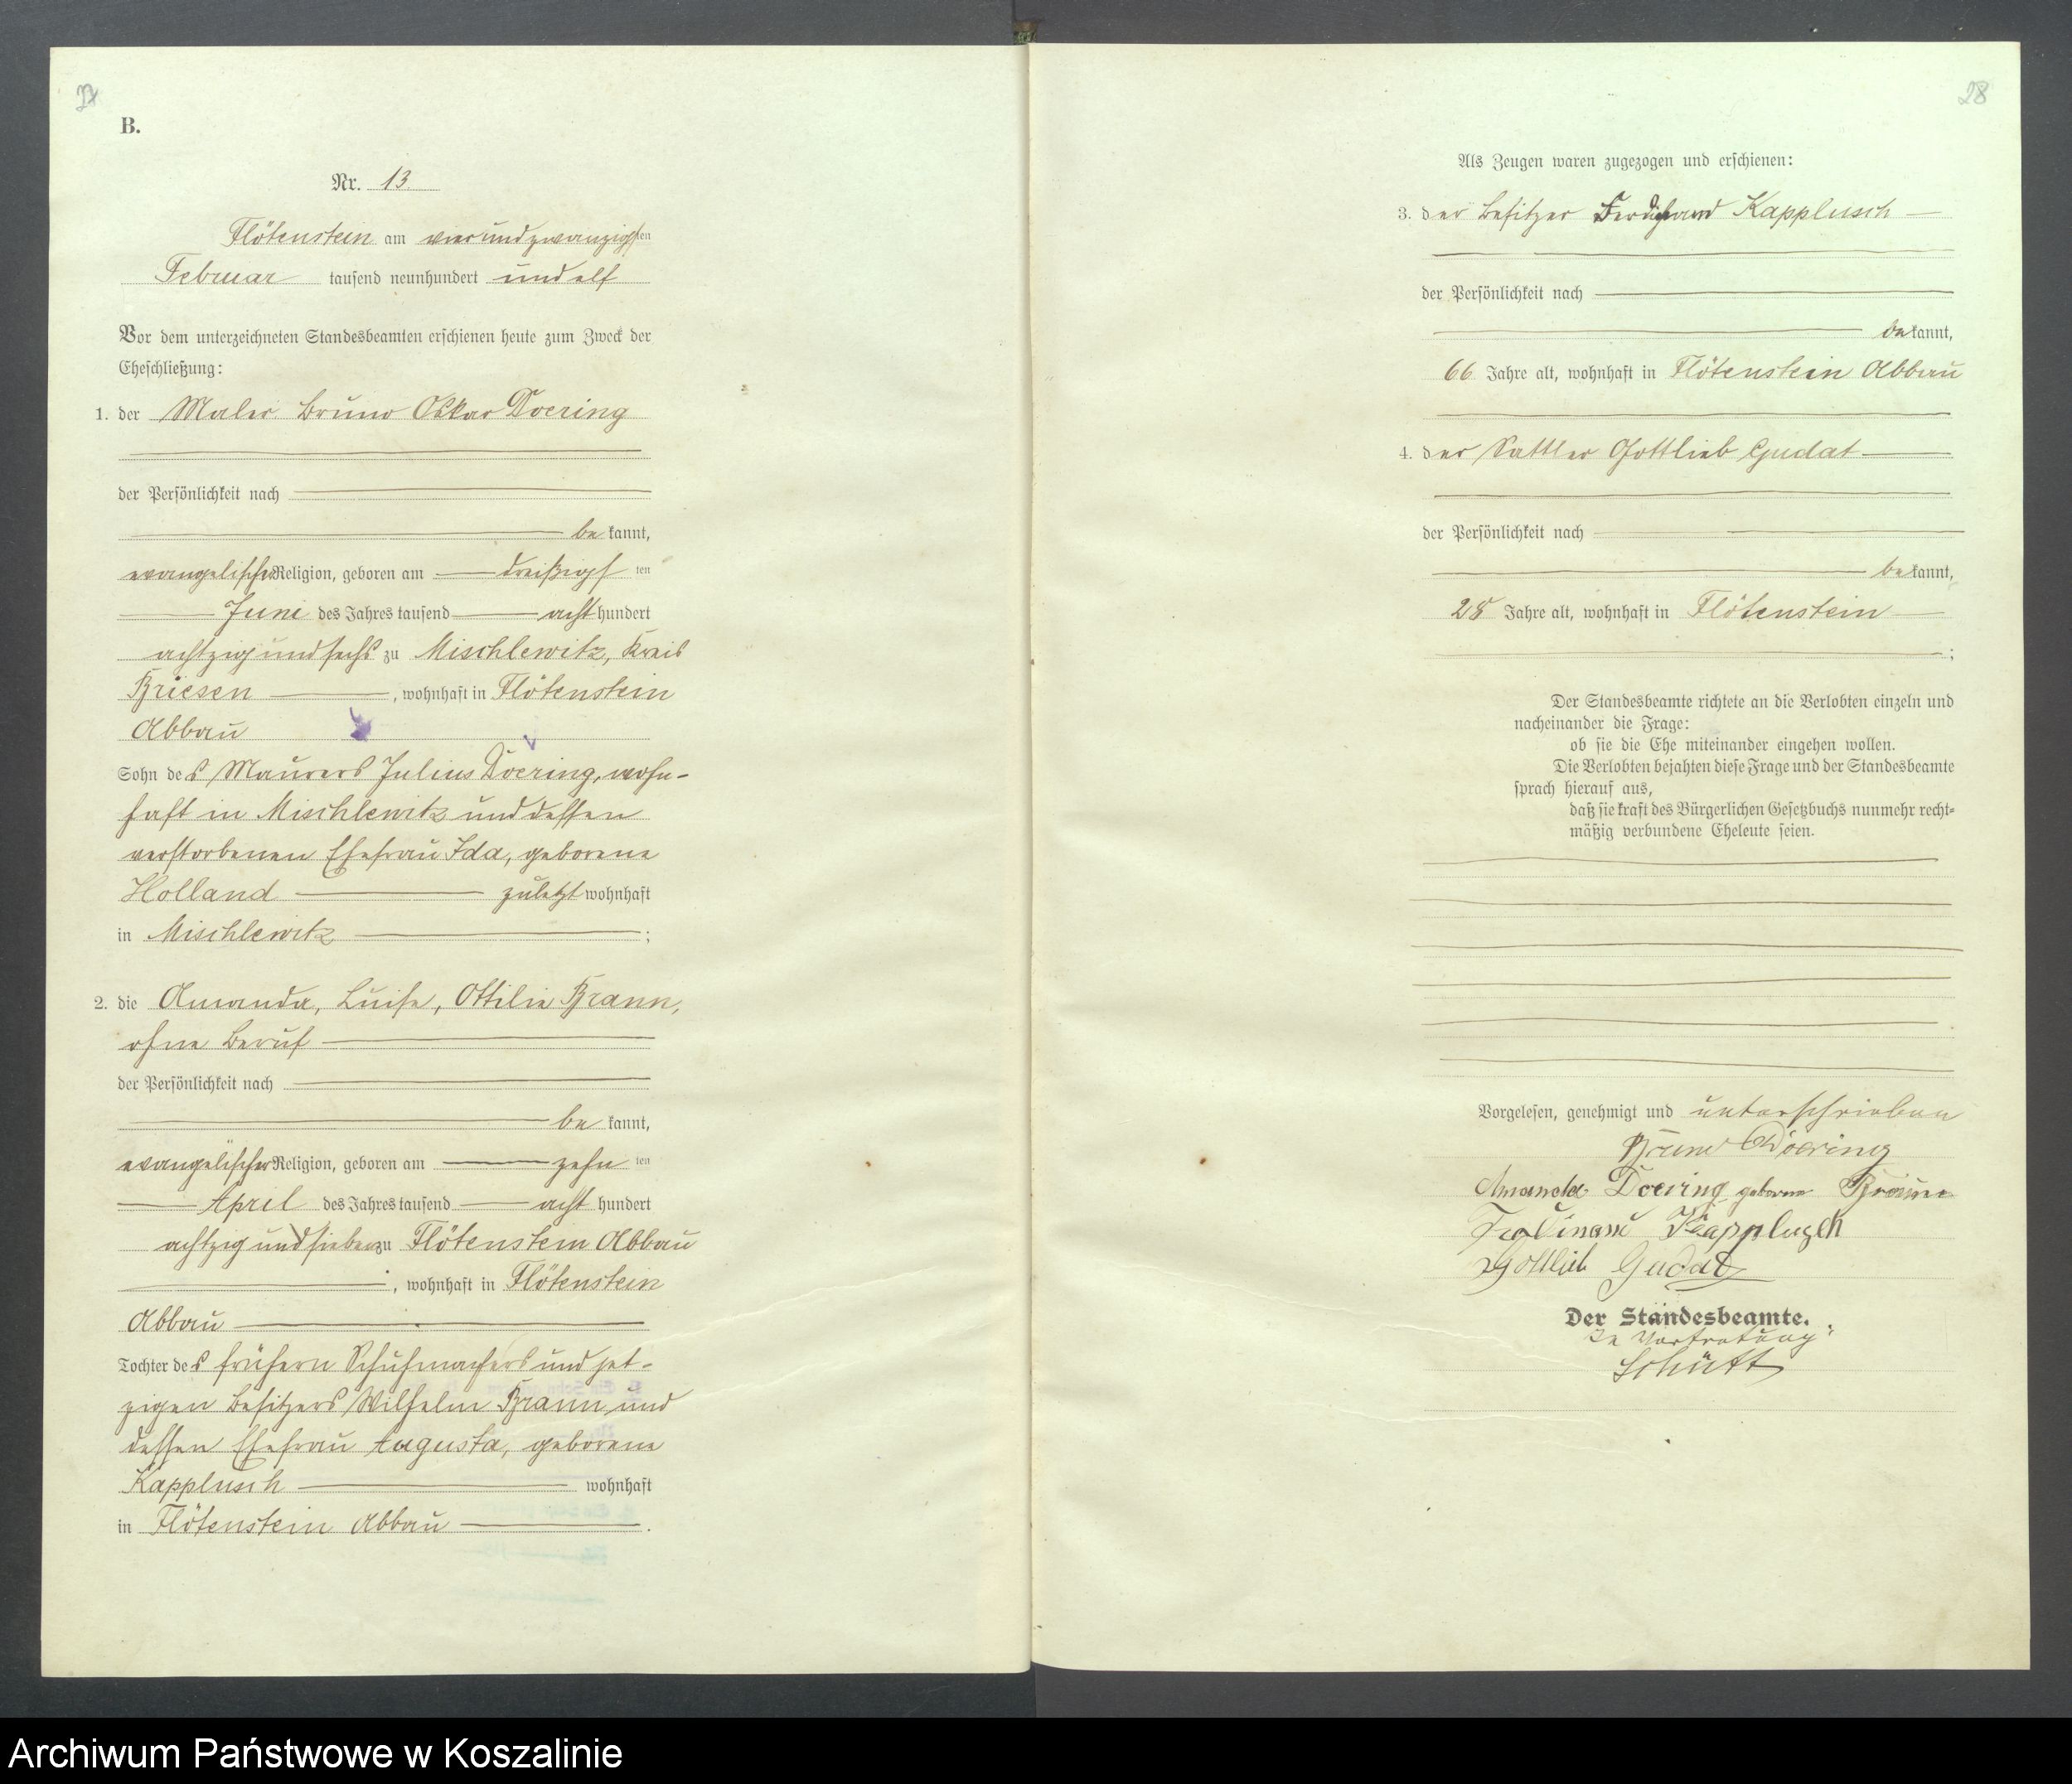 B.
Nr. 13
Flötenstein am vierundzwanzigsten
Februar tausend neunhundert und elf
Vor dem unterzeichneten Standesbeamten erschienen heute zum Zweck der
Eheschließung:
1. der Maler Bruno Oskar Doering
der Persönlichkeit nach
be kannt,
evangelischer Religion, geboren am dreißigsten
Juni des Jahres tausend acht hundert
achtzig und sechs zu Mischlewitz, Kreis
Briesen, wohnhaft in Flötenstein
Abbau
Sohn des Maurers Julius Doering, wohn-
haft in Mischlewitz und dessen
verstorbenen Ehefrau Ida, geborene
Holland zuletzt wohnhaft
in Mischlewitz;
2. die Amanda, Luise, Ottilie Braun,
ohne Beruf
der Persönlichkeit nach
be kannt,
evangelischer Religion, geboren am zehn ten
April des Jahres tausend acht hundert
achtzig und sieben zu Flötenstein Abbau
, wohnhaft in Flötenstein
Abbau
Tochter des frühern Schuhmachers und jet-
zigen Besitzers Wilhelm Braun und
dessen Ehefrau Augusta, geborene
Kapplusch wohnhaft
in Flötenstein Abbau.
28
Als Zeugen waren zugezogen und erschienen:
3. der Besitzer Ferdinand Kapplusch
der Persönlichkeit nach
be kannt,
66 Jahre alt, wohnhaft in Flötenstein Abbau
4. der Sattler Gottlieb Gudat
der Persönlichkeit nach
be kannt,
28 Jahre alt, wohnhaft in Flötenstein
;
Der Standesbeamte richtete an die Verlobten einzeln und
nacheinander die Frage:
ob sie die Ehe miteinander eingehen wollen.
Die Verlobten bejahten diese Frage und der Standesbeamte
sprach hierauf aus,
daß sie kraft des Bürgerlichen Gesetzbuchs nunmehr recht-
mäßig verbundene Eheleute seien.
Vorgelesen, genehmigt und unterschrieben
Bruno Doering
Amanda Doering geborene Braun
Ferdinand Kapplusch
Gottlieb Gudat
Der Standesbeamte.
In Vertretung:
Schütt
Archiwum Państwowe w Koszalinie